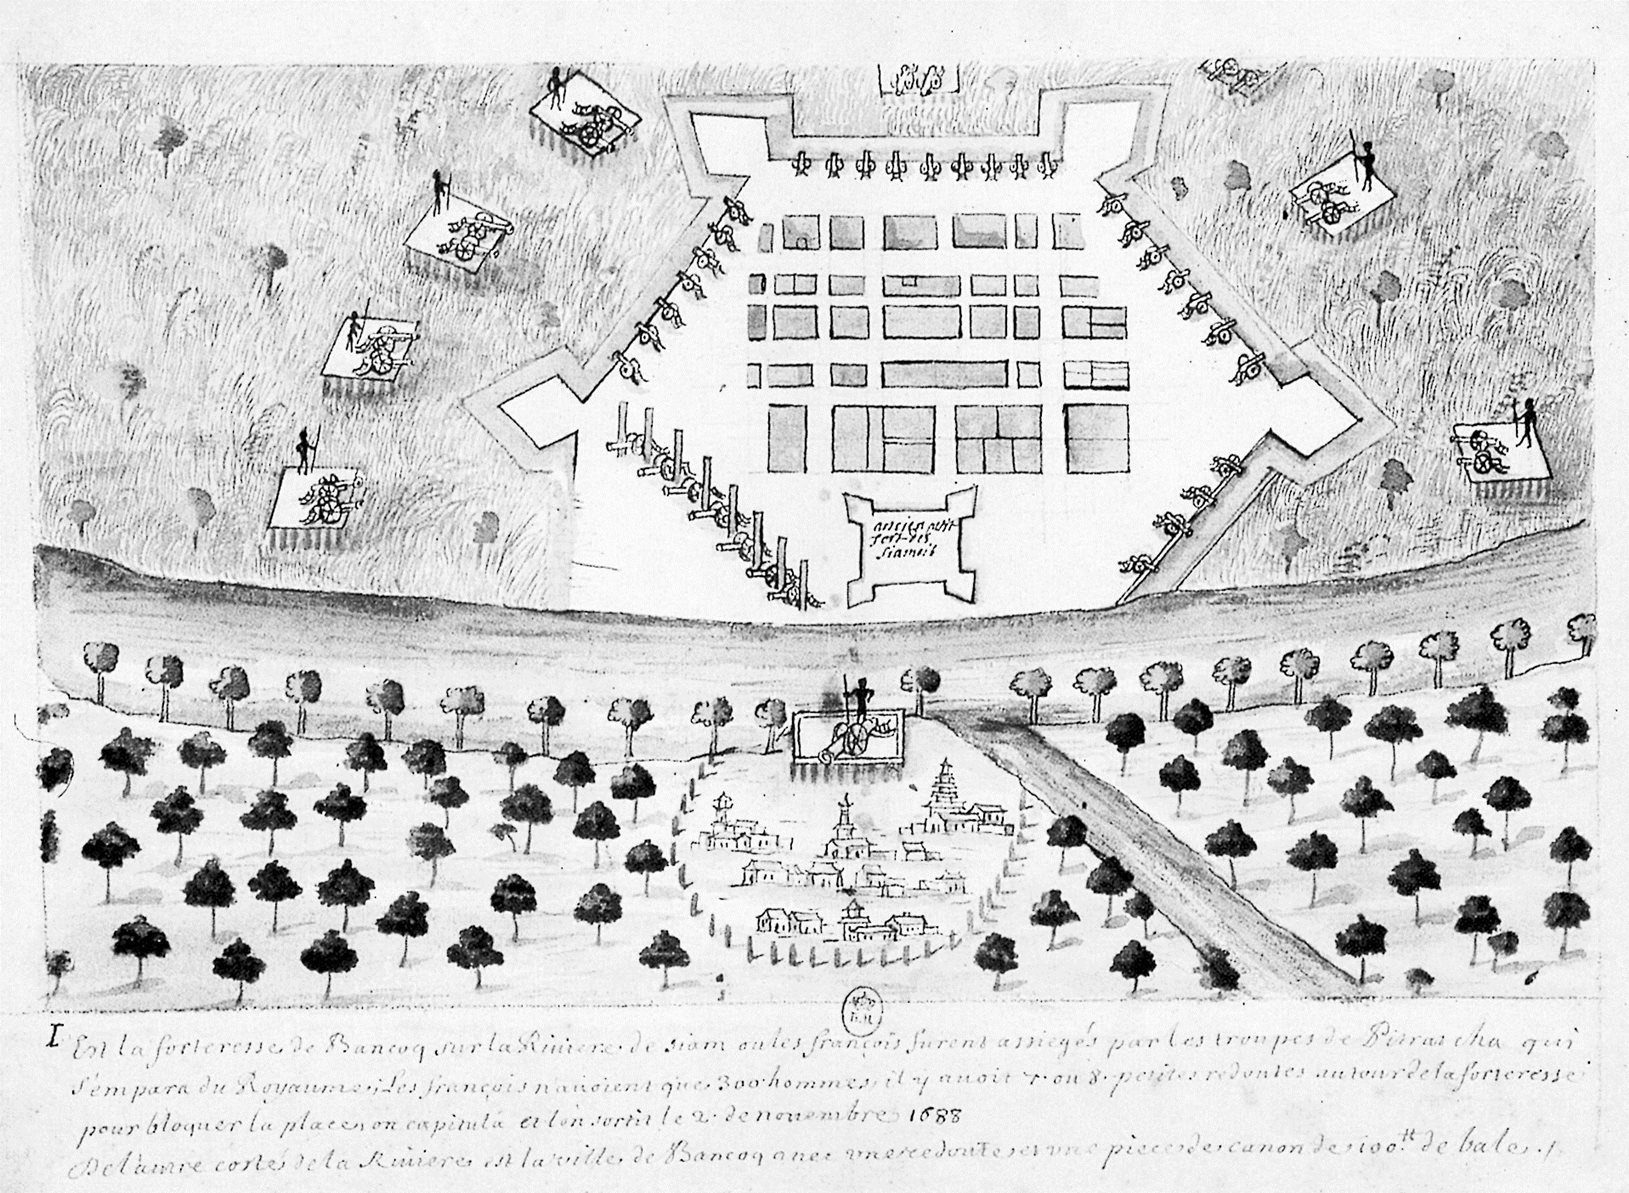 ancien petit
fort des
siamois
B.R.
I Est la forteresse de Bancoq sur la Riviere de siam ou les françois furent assiegés par les troupes de Pitratcha qui
s'empara du Royaume, Les françois n'avoient que 300 hommes, il y avoit 7. ou 8. petites redoutes autour de la forteresse
pour bloquer la place, on capitula et l'on sortit le 2. de novembre 1688
De l'autre costé de la Riviere est la ville de Bancoq avec une redoute et une piece de canon de 100.tt de bale.